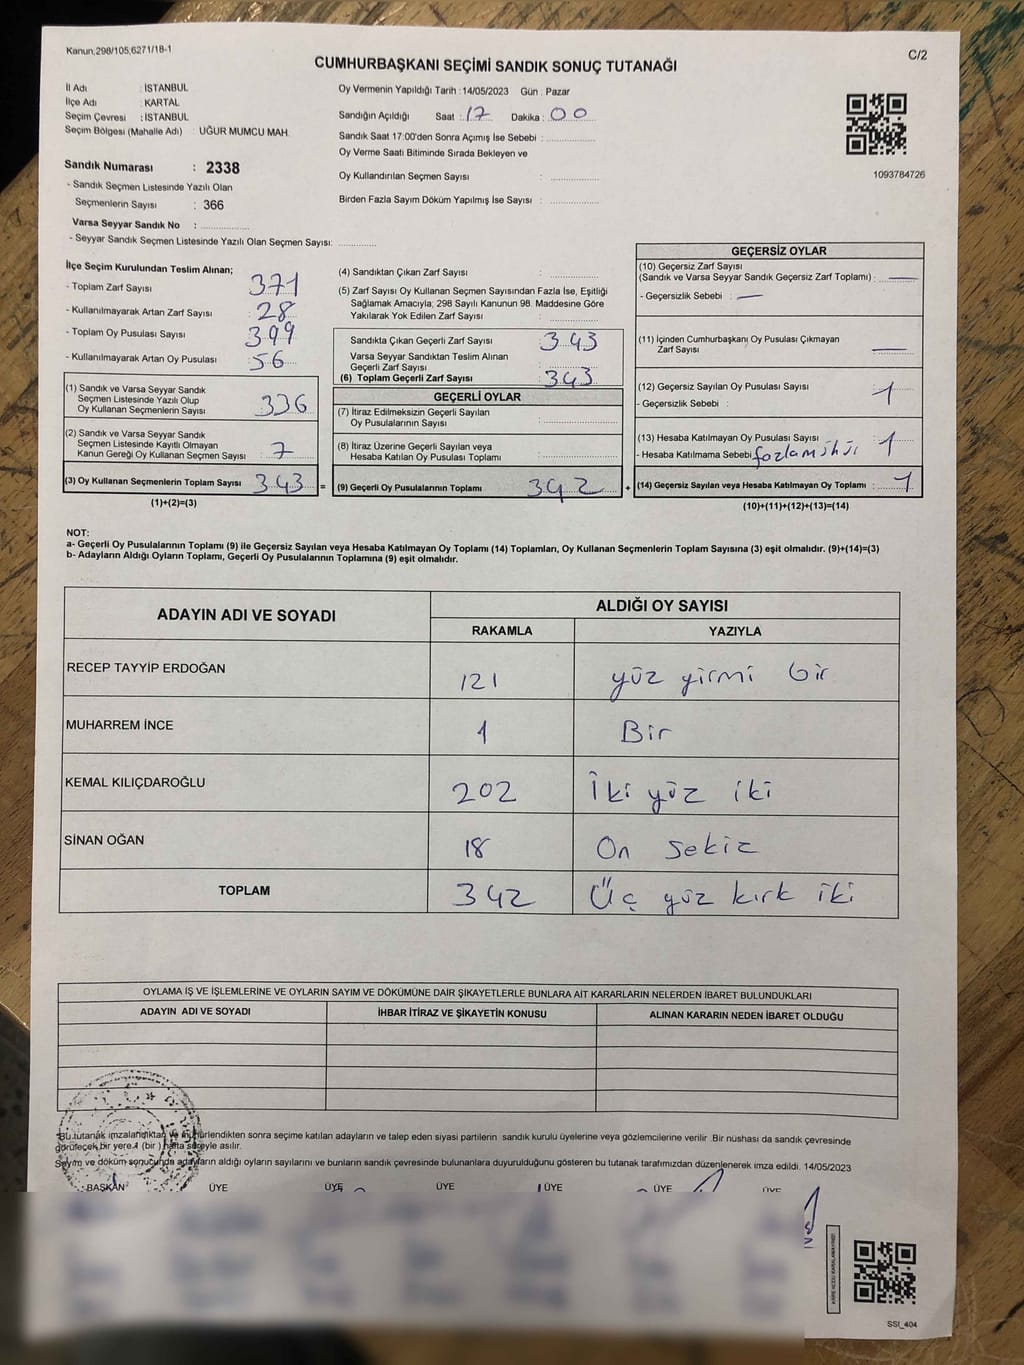 Kanun,298/105,6271/18-1
C/2
CUMHURBAŞKANI SEÇİMİ SANDIK SONUÇ TUTANAĞI
İl Adı : İSTANBUL
İlçe Adı : KARTAL
Seçim Çevresi : İSTANBUL
Seçim Bölgesi (Mahalle Adı) : UĞUR MUMCU MAH.
Sandık Numarası : 2338
- Sandık Seçmen Listesinde Yazılı Olan
Seçmenlerin Sayısı : 366
Varsa Seyyar Sandık No :
- Seyyar Sandık Seçmen Listesinde Yazılı Olan Seçmen Sayısı:
Oy Vermenin Yapıldığı Tarih : 14/05/2023 Gün : Pazar
Sandığın Açıldığı Saat : 17 Dakika : 00
Sandık Saat 17:00'den Sonra Açımış İse Sebebi :
Oy Verme Saati Bitiminde Sırada Bekleyen ve
Oy Kullandırılan Seçmen Sayısı :
Birden Fazla Sayım Döküm Yapılmış İse Sayısı :
1093784726
İlçe Seçim Kurulundan Teslim Alınan;
- Toplam Zarf Sayısı : 371
- Kullanılmayarak Artan Zarf Sayısı : 28
- Toplam Oy Pusulası Sayısı : 399
- Kullanılmayarak Artan Oy Pusulası : 56
(1) Sandık ve Varsa Seyyar Sandık
Seçmen Listesinde Yazılı Olup
Oy Kullanan Seçmenlerin Sayısı : 336
(2) Sandık ve Varsa Seyyar Sandık
Seçmen Listesinde Kayıtlı Olmayan
Kanun Gereği Oy Kullanan Seçmen Sayısı : 7
(3) Oy Kullanan Seçmenlerin Toplam Sayısı : 343 =
(1)+(2)=(3)
(4) Sandıktan Çıkan Zarf Sayısı :
(5) Zarf Sayısı Oy Kullanan Seçmen Sayısından Fazla İse, Eşitliği
Sağlamak Amacıyla; 298 Sayılı Kanunun 98. Maddesine Göre
Yakılarak Yok Edilen Zarf Sayısı :
Sandıkta Çıkan Geçerli Zarf Sayısı : 343
Varsa Seyyar Sandıktan Teslim Alınan
Geçerli Zarf Sayısı :
(6) Toplam Geçerli Zarf Sayısı : 343
GEÇERLİ OYLAR
(7) İtiraz Edilmeksizin Geçerli Sayılan
Oy Pusulalarının Sayısı :
(8) İtiraz Üzerine Geçerli Sayılan veya
Hesaba Katılan Oy Pusulası Toplamı :
(9) Geçerli Oy Pusulalarının Toplamı : 342 +
GEÇERSİZ OYLAR
(10) Geçersiz Zarf Sayısı
(Sandık ve Varsa Seyyar Sandık Geçersiz Zarf Toplamı) : —
- Geçersizlik Sebebi : —
(11) İçinden Cumhurbaşkanı Oy Pusulası Çıkmayan
Zarf Sayısı : —
(12) Geçersiz Sayılan Oy Pusulası Sayısı : 1
- Geçersizlik Sebebi :
(13) Hesaba Katılmayan Oy Pusulası Sayısı : 1
- Hesaba Katılmama Sebebi
(14) Geçersiz Sayılan veya Hesaba Katılmayan Oy Toplamı : 1
(10)+(11)+(12)+(13)=(14)
NOT:
a- Geçerli Oy Pusulalarının Toplamı (9) ile Geçersiz Sayılan veya Hesaba Katılmayan Oy Toplamı (14) Toplamları, Oy Kullanan Seçmenlerin Toplam Sayısına (3) eşit olmalıdır. (9)+(14)=(3)
b- Adayların Aldığı Oyların Toplamı, Geçerli Oy Pusulalarının Toplamına (9) eşit olmalıdır.
ADAYIN ADI VE SOYADI
ALDIĞI OY SAYISI
RAKAMLA YAZIYLA
RECEP TAYYİP ERDOĞAN 121 yüz yirmi bir
MUHARREM İNCE 1 Bir
KEMAL KILIÇDAROĞLU 202 İki yüz iki
SİNAN OĞAN 18 On sekiz
TOPLAM 342 Üç yüz kırk iki
OYLAMA İŞ VE İŞLEMLERİNE VE OYLARIN SAYIM VE DÖKÜMÜNE DAİR ŞİKAYETLERLE BUNLARA AİT KARARLARIN NELERDEN İBARET BULUNDUKLARI
ADAYIN ADI VE SOYADI İHBAR İTİRAZ VE ŞİKAYETİN KONUSU ALINAN KARARIN NEDEN İBARET OLDUĞU
Bu tutanak imzalandıktan ve mühürlendikten sonra seçime katılan adayların ve talep eden siyasi partilerin sandık kurulu üyelerine veya gözlemcilerine verilir. Bir nüshası da sandık çevresinde
görülecek bir yere 1 (bir) hafta süreyle asılır.
Sayım ve döküm sonucunda adayların aldığı oyların sayılarını ve bunların sandık çevresinde bulunanlara duyurulduğunu gösteren bu tutanak tarafımızdan düzenlenerek imza edildi. 14/05/2023
BAŞKAN ÜYE ÜYE ÜYE ÜYE ÜYE ÜYE
SSI_404